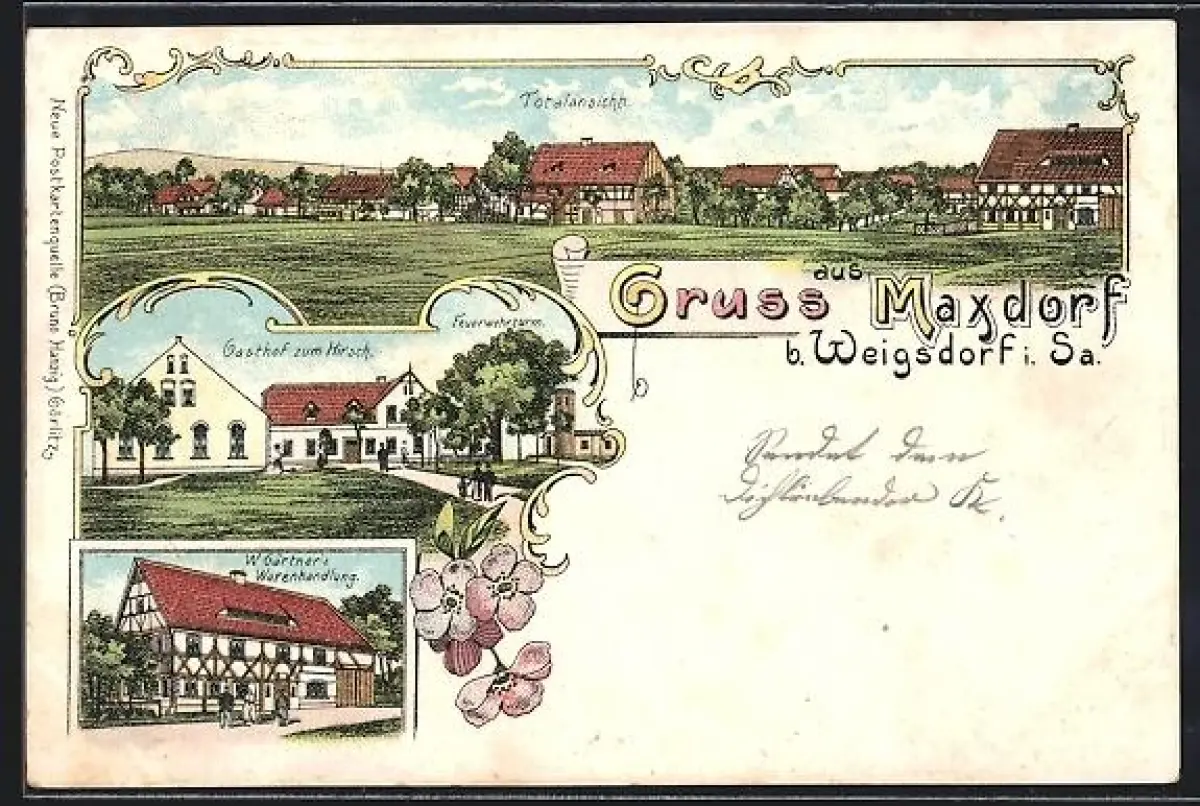 Totalansicht.
Gruss aus Maxdorf
b. Weigsdorf i. Sa.
Feuerwehrturm.
Gasthof zum Hirsch.
W. Gärtner's
Warenhandlung.
Neue Postkartenquelle (Bruno Hanzig) Görlitz,
Sendet dem